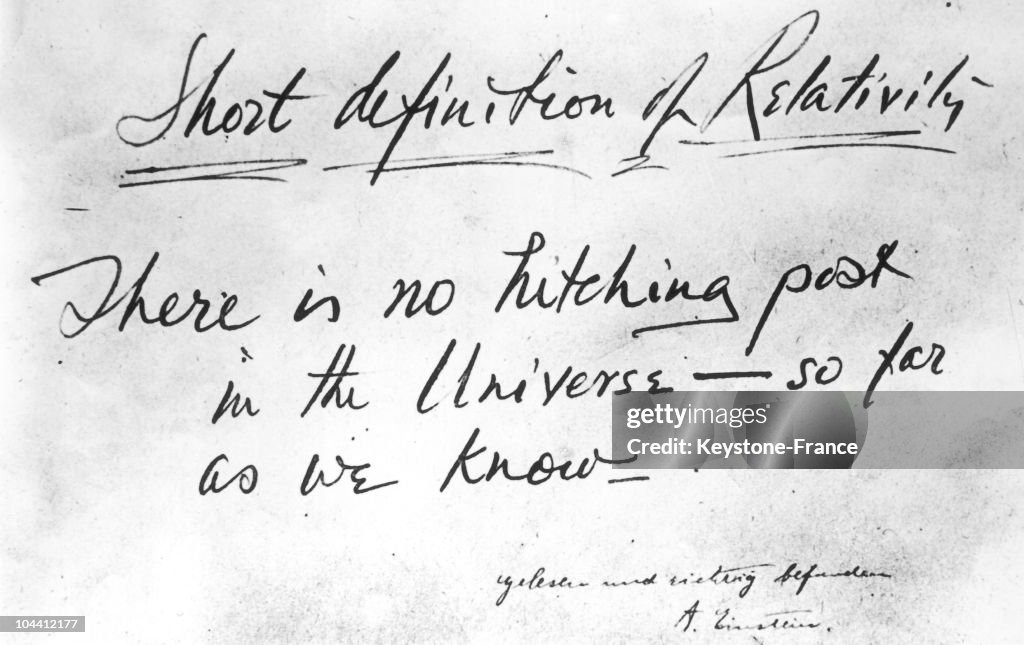 Short definition of Relativity
There is no hitching post
in the Universe — so far
as we know
gettyimages®
Keystone-France
gelesen und richtig befunden
A. Einstein.
104412177